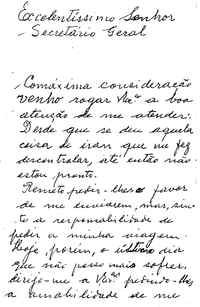 Excelentíssimo Senhor
- Secretário Geral
- Com máxima consideração
venho rogar V.ª a boa
atenção de me atender.
Desde que se deu aquela
coisa de iran que me fez
descontrolar, até então não
estou pronto.
Remeto, pedir-lhes o favor
de me enviarem, mas, sin-
to a responsabilidade de
pedir a minha viagem.
Hoje, porém, o último dia
que não posso mais sofrer,
dirijo-me a V.ª pedindo-lhe,
a amabilidade de me